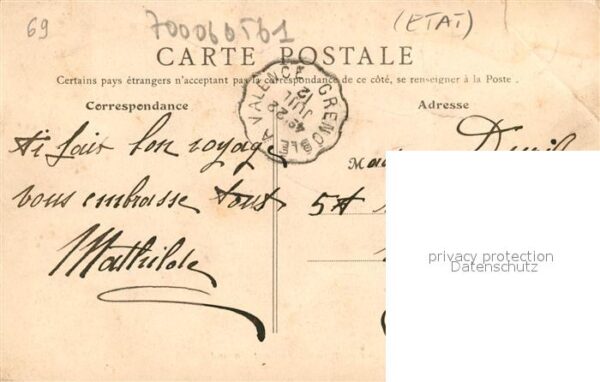 69
700060561
(ETAT)
CARTE POSTALE
Certains pays étrangers n'acceptant pas la correspondance de ce côté, se renseigner à la Poste.
Correspondance
Adresse
GRENOBLE A VALENCE
22
JUIL
12
fait bon voyage
vous embrasse tous
Mathilde
5t
privacy protection
Datenschutz